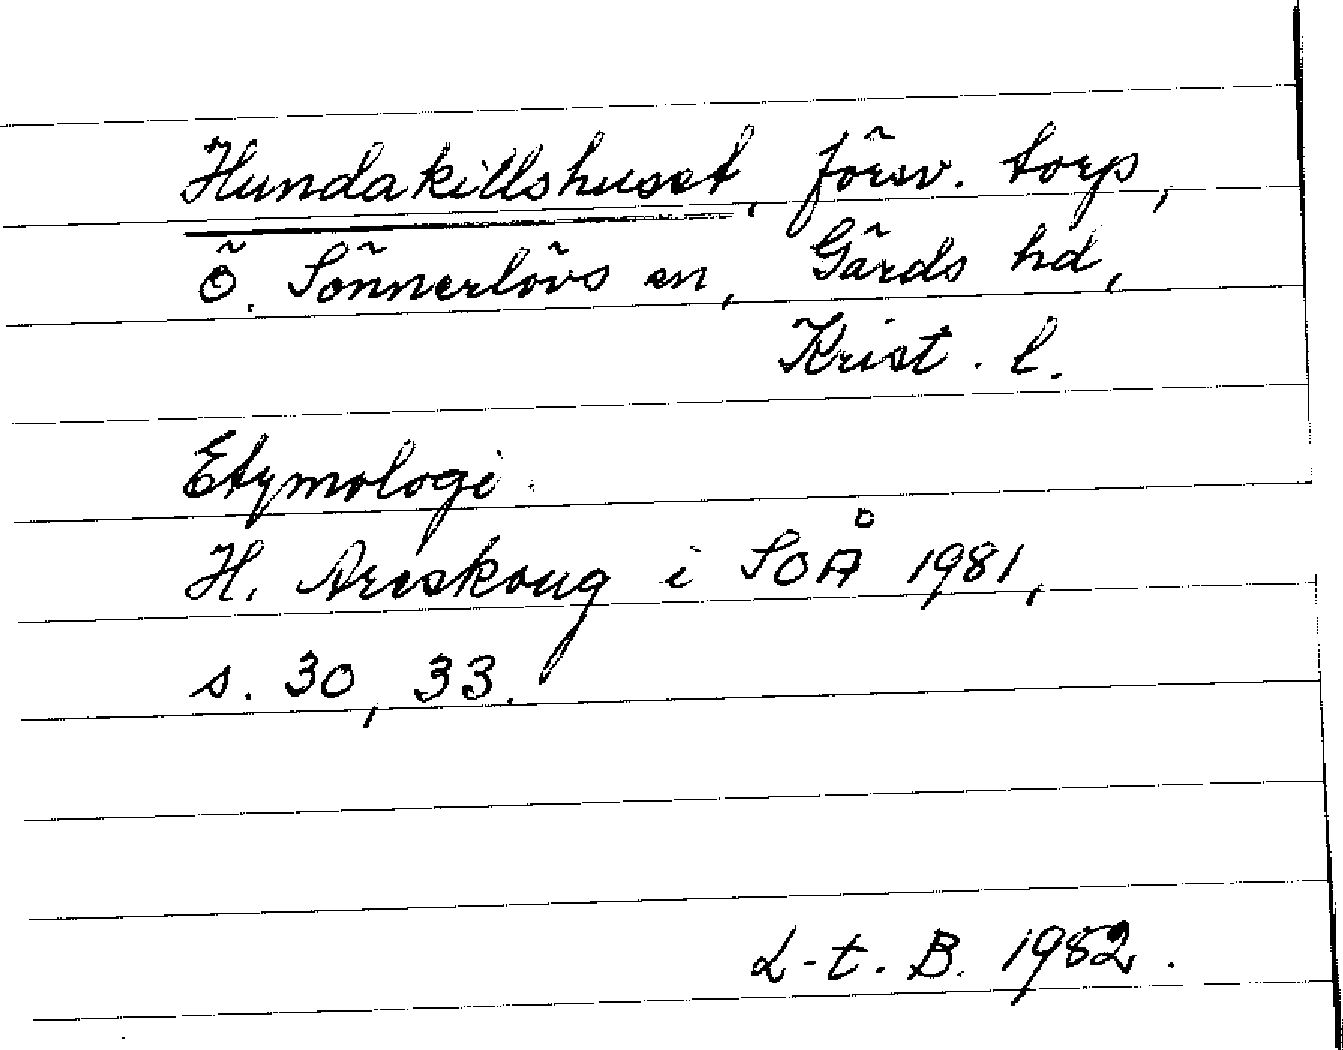 Hundakillshuset, försv. torp,
Ö. Sönnerlövs sn, Gärds hd,
Krist. l.
Etymologi.
H. Areskoug i SOÅ 1981,
s. 30, 33.
L-t. B. 1982.